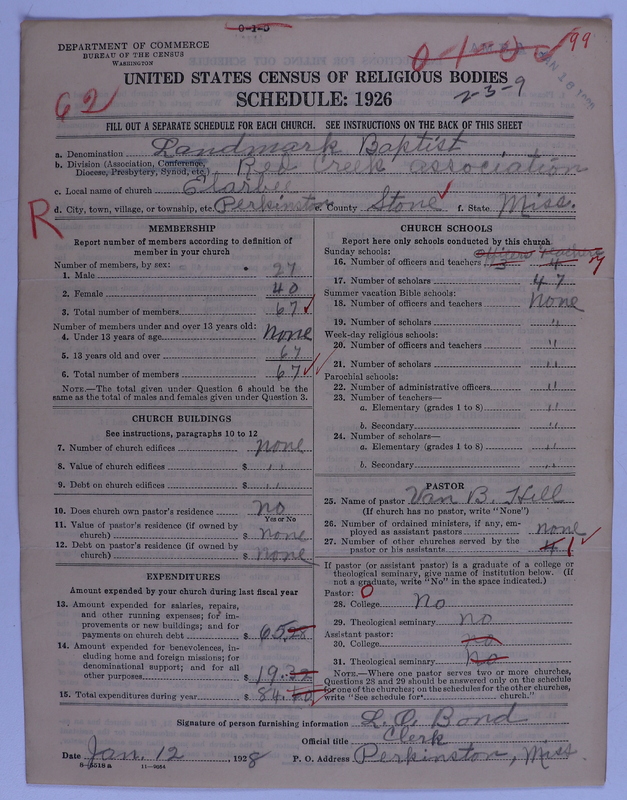 0-1-5
DEPARTMENT OF COMMERCE
BUREAU OF THE CENSUS
WASHINGTON
99
UNITED STATES CENSUS OF RELIGIOUS BODIES
62
SCHEDULE: 1926
2-3-9
FILL OUT A SEPARATE SCHEDULE FOR EACH CHURCH. SEE INSTRUCTIONS ON THE BACK OF THIS SHEET
a. Denomination Landmark Baptist
b. Division (Association, Conference, Diocese, Presbytery, Synod, etc.) Red Creek association
c. Local name of church
d. City, town, village, or township, etc. Perkinston e. County Stone f. State Miss.
R
MEMBERSHIP
Report number of members according to definition of
member in your church
Number of members, by sex:
1. Male 27
2. Female 40
3. Total number of members 67
Number of members under and over 13 years old:
4. Under 13 years of age none
5. 13 years old and over 67
6. Total number of members 67
NOTE.—The total given under Question 6 should be the
same as the total of males and females given under Question 3.
CHURCH BUILDINGS
See instructions, paragraphs 10 to 12
7. Number of church edifices none
8. Value of church edifices $ " "
9. Debt on church edifices $ " "
10. Does church own pastor's residence no
Yes or No
11. Value of pastor's residence (if owned by
church) $ none
12. Debt on pastor's residence (if owned by
church) $ none
EXPENDITURES
Amount expended by your church during last fiscal year
13. Amount expended for salaries, repairs,
and other running expenses; for im-
provements or new buildings; and for
payments on church debt $ 65.28
14. Amount expended for benevolences, in-
cluding home and foreign missions; for
denominational support; and for all
other purposes $ 19.32
15. Total expenditures during year $ 84.60
CHURCH SCHOOLS
Report here only schools conducted by this church
Sunday schools:
officers teachers
16. Number of officers and teachers 3 4 7
17. Number of scholars 47
Summer vacation Bible schools:
18. Number of officers and teachers None
19. Number of scholars "
Week-day religious schools:
20. Number of officers and teachers "
21. Number of scholars "
Parochial schools:
22. Number of administrative officers "
23. Number of teachers—
a. Elementary (grades 1 to 8) "
b. Secondary "
24. Number of scholars—
a. Elementary (grades 1 to 8) "
b. Secondary "
PASTOR
25. Name of pastor Van B. Hill
(If church has no pastor, write "None")
26. Number of ordained ministers, if any, em-
ployed as assistant pastors none
27. Number of other churches served by the
pastor or his assistants 4 1
If pastor (or assistant pastor) is a graduate of a college or
theological seminary, give name of institution below. (If
not a graduate, write "No" in the space indicated.)
Pastor: 0
28. College No
29. Theological seminary no
Assistant pastor:
30. College no
31. Theological seminary no
NOTE.—Where one pastor serves two or more churches,
Questions 28 and 29 should be answered only on the schedule
for one of the churches; on the schedules for the other churches,
write "See schedule for church."
Signature of person furnishing information L. O. Bond
Official title Clerk
Date Jan. 12, 1928 P. O. Address Perkinston, Miss
8-5518 a 11-9084